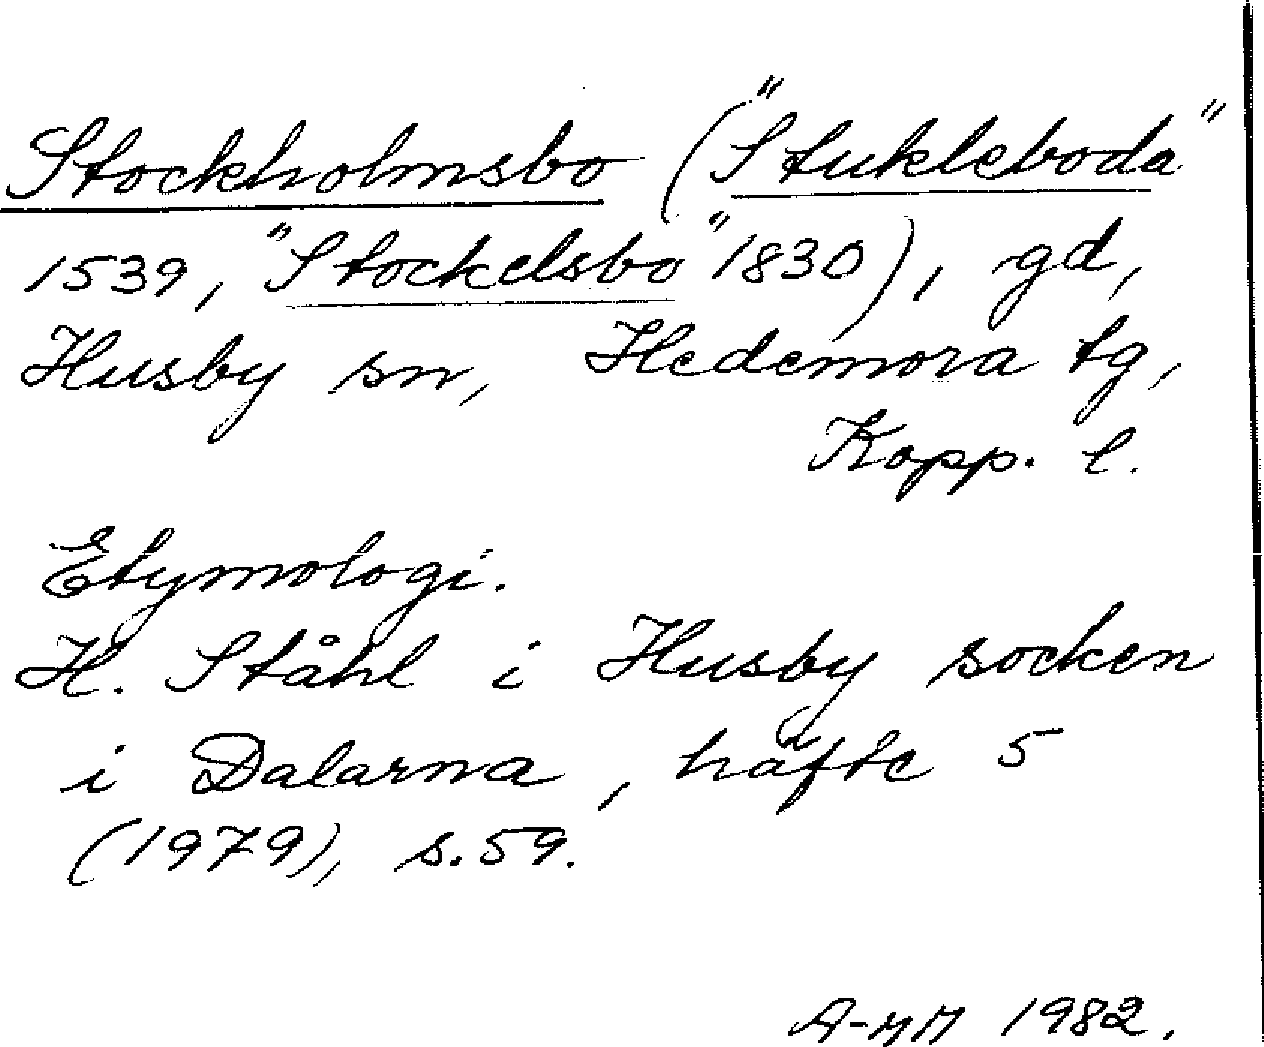 Stockholmsbo ("Stukleboda"
1539, "Stockelsbo" 1830), gd,
Husby sn, Hedemora tg,
Kopp. l.
Etymologi.
H. Ståhl i Husby socken
i Dalarna, häfte 5
(1979), s. 59.
A-MM 1982.